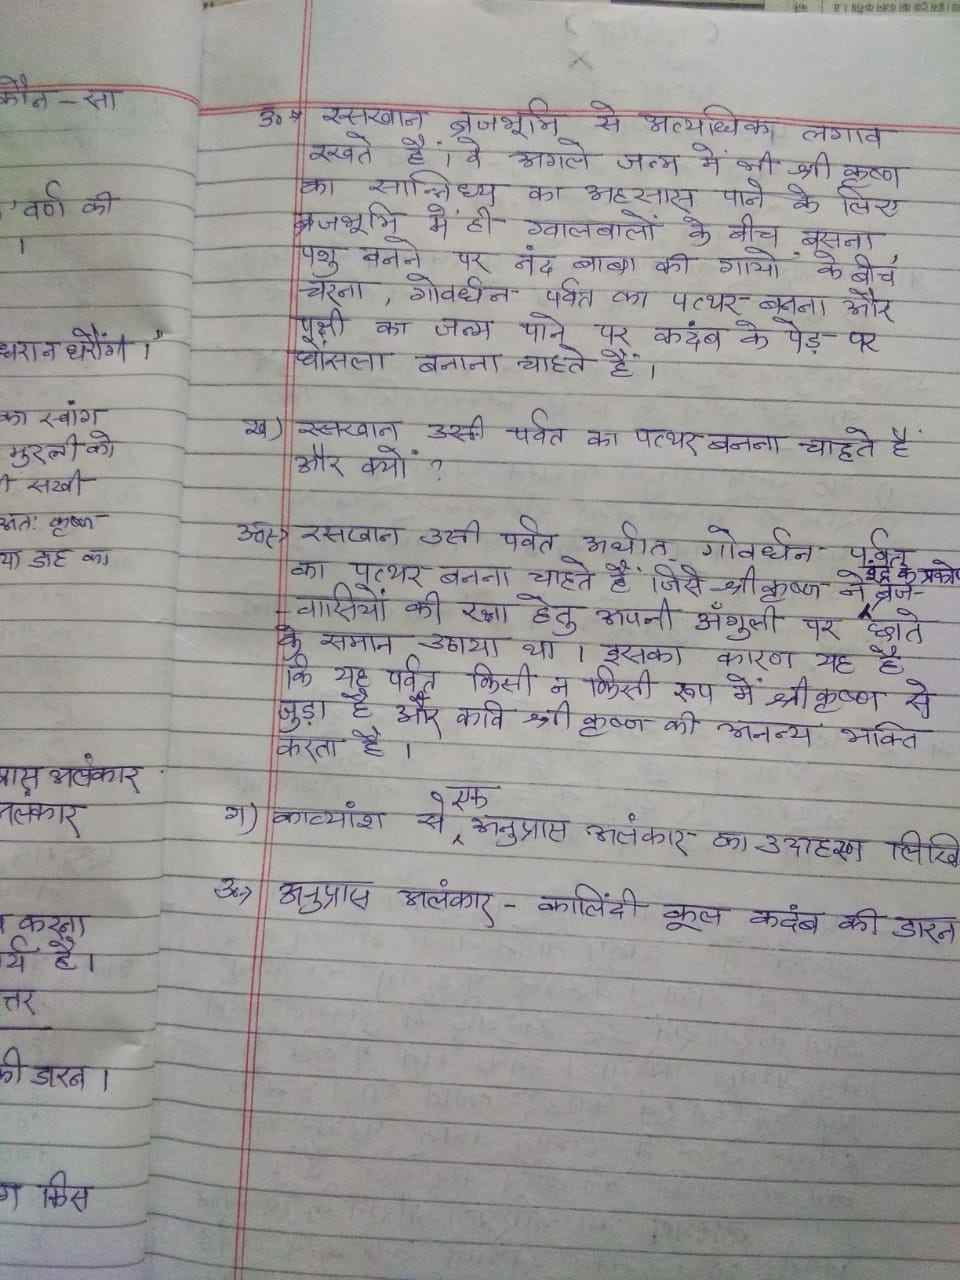 कौन - सा
वर्ण की
।
धरा न धरौंगी ।"
का स्वांग
मुरली को
सखी
अतः कृष्ण
या डाह का
अलंकार
करना
है।
त्तर
की डारन ।
किस
उ०→ रसखान ब्रजभूमि से अत्यधिक लगाव
रखते हैं। वे अगले जन्म में भी श्री कृष्ण
का सान्निध्य का अहसास पाने के लिए
ब्रजभूमि में ही ग्वालबालों के बीच बसना,
पशु बनने पर नंद बाबा की गायों के बीच
चरना, गोवर्धन पर्वत का पत्थर बनना और
पक्षी का जन्म पाने पर कदंब के पेड़ पर
घोंसला बनाना चाहते हैं।
ख) रसखान उसी पर्वत का पत्थर बनना चाहते हैं
और क्यों ?
उ०→ रसखान उसी पर्वत अर्थात गोवर्धन पर्वत
का पत्थर बनना चाहते हैं जिसे श्रीकृष्ण ने इंद्र के प्रकोप ब्रज-
-वासियों की रक्षा हेतु अपनी अँगुली पर छाते
के समान उठाया था। इसका कारण यह है
कि यह पर्वत किसी न किसी रूप में श्रीकृष्ण से
जुड़ा है और कवि श्री कृष्ण की अनन्य भक्ति
करता है।
ग) काव्यांश से एक अनुप्रास अलंकार का उदाहरण लिखि
उ०→ अनुप्रास अलंकार - कालिंदी कूल कदंब की डारन